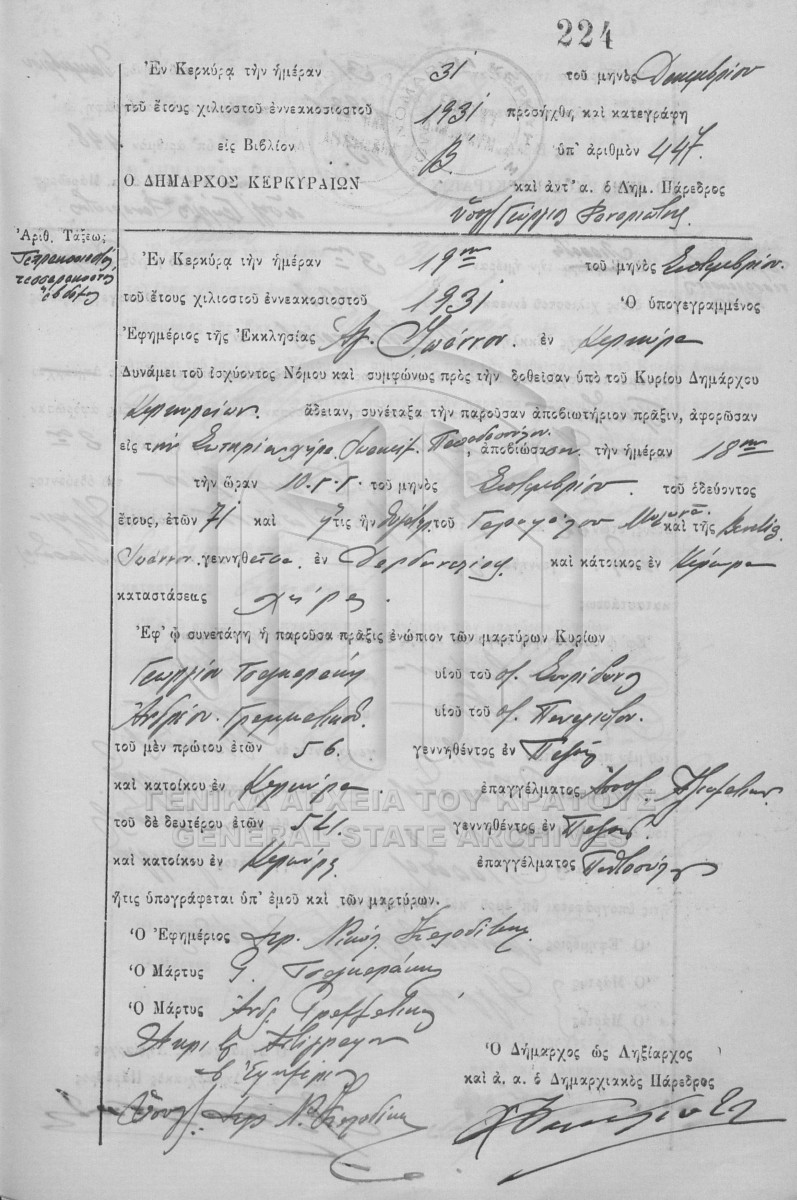 224
Ἐν Κερκύρᾳ τὴν ἡμέραν 31 τοῦ μηνὸς Δεκεμβρίου
τοῦ ἔτους χιλιοστοῦ ἐννεακοσιοστοῦ 1931 προσήχθη καὶ κατεγράφη
εἰς Βιβλίον Β΄ ὑπ' ἀριθμὸν 447.
Ο ΔΗΜΑΡΧΟΣ ΚΕΡΚΥΡΑΙΩΝ καὶ ἀντ' α. ὁ Δημ. Πάρεδρος
Γεώργιος
Ἀριθ. Τάξεως
Τετρακοσιοστὸς
τεσσαρακοστὸς
ἕβδομος
Ἐν Κερκύρᾳ τὴν ἡμέραν 19ην τοῦ μηνὸς Σεπτεμβρίου.
τοῦ ἔτους χιλιοστοῦ ἐννεακοσιοστοῦ 1931 Ὁ ὑπογεγραμμένος
Ἐφημέριος τῆς Ἐκκλησίας Ἁγ. Ἰωάννου. ἐν Κερκύρᾳ
Δυνάμει τοῦ ἰσχύοντος Νόμου καὶ συμφώνως πρὸς τὴν δοθεῖσαν ὑπὸ τοῦ Κυρίου Δημάρχου
Κερκυραίων. ἄδειαν, συνέταξα τὴν παροῦσαν ἀποβιωτήριον πρᾶξιν, ἀφορῶσαν
εἰς τὴν Σωτηρία χήρα Ἰωακεὶμ Παπαδοπούλου, ἀποβιώσασαν τὴν ἡμέραν 18ην
τὴν ὥραν 10 τοῦ μηνὸς Σεπτεμβρίου. τοῦ ὁδεύοντος
ἔτους, ἐτῶν 71 καὶ ἥτις ἦν θυγάτηρ τοῦ καὶ τῆς
Ἰωάννου. γεννηθεῖσα ἐν Δαρδανελίοις καὶ κάτοικος ἐν Κέρκυρα
καταστάσεως χήρα.
Ἐφ' ᾧ συνετάγη ἡ παροῦσα πρᾶξις ἐνώπιον τῶν μαρτύρων Κυρίων
Γεωργίου υἱοῦ τοῦ Σπυρίδωνος
Ἀνδρέου. Γραμματικοῦ. υἱοῦ τοῦ Παναγιώτου.
τοῦ μὲν πρώτου ἐτῶν 56. γεννηθέντος ἐν
καὶ κατοίκου ἐν Κερκύρᾳ. ἐπαγγέλματος
τοῦ δὲ δευτέρου ἐτῶν 54. γεννηθέντος ἐν
καὶ κατοίκου ἐν Κερκύρᾳ ἐπαγγέλματος
ἥτις ὑπογράφεται ὑπ' ἐμοῦ καὶ τῶν μαρτύρων.
Ὁ Ἐφημέριος Ἱερ. Νικόλ.
Ὁ Μάρτυς Γ.
Ὁ Μάρτυς Ἀνδ. Γραμματικὸς
Ἀκριβὲς Ἀντίγραφον
ὁ Ἐφημέριος
Ὁ Δήμαρχος ὡς Ληξίαρχος
καὶ ἀ. α. ὁ Δημαρχιακὸς Πάρεδρος
ΓΕΝΙΚΑ ΑΡΧΕΙΑ ΤΟΥ ΚΡΑΤΟΥΣ
GENERAL STATE ARCHIVES